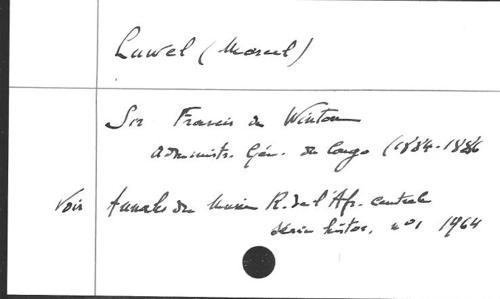 Luwel (Marcel)
Sir Francis de Winton
Administr. Gén. du Congo (1884-1886
Voir Annales du Musée R. de l'Afr. centrale
série histor., n°1 1964